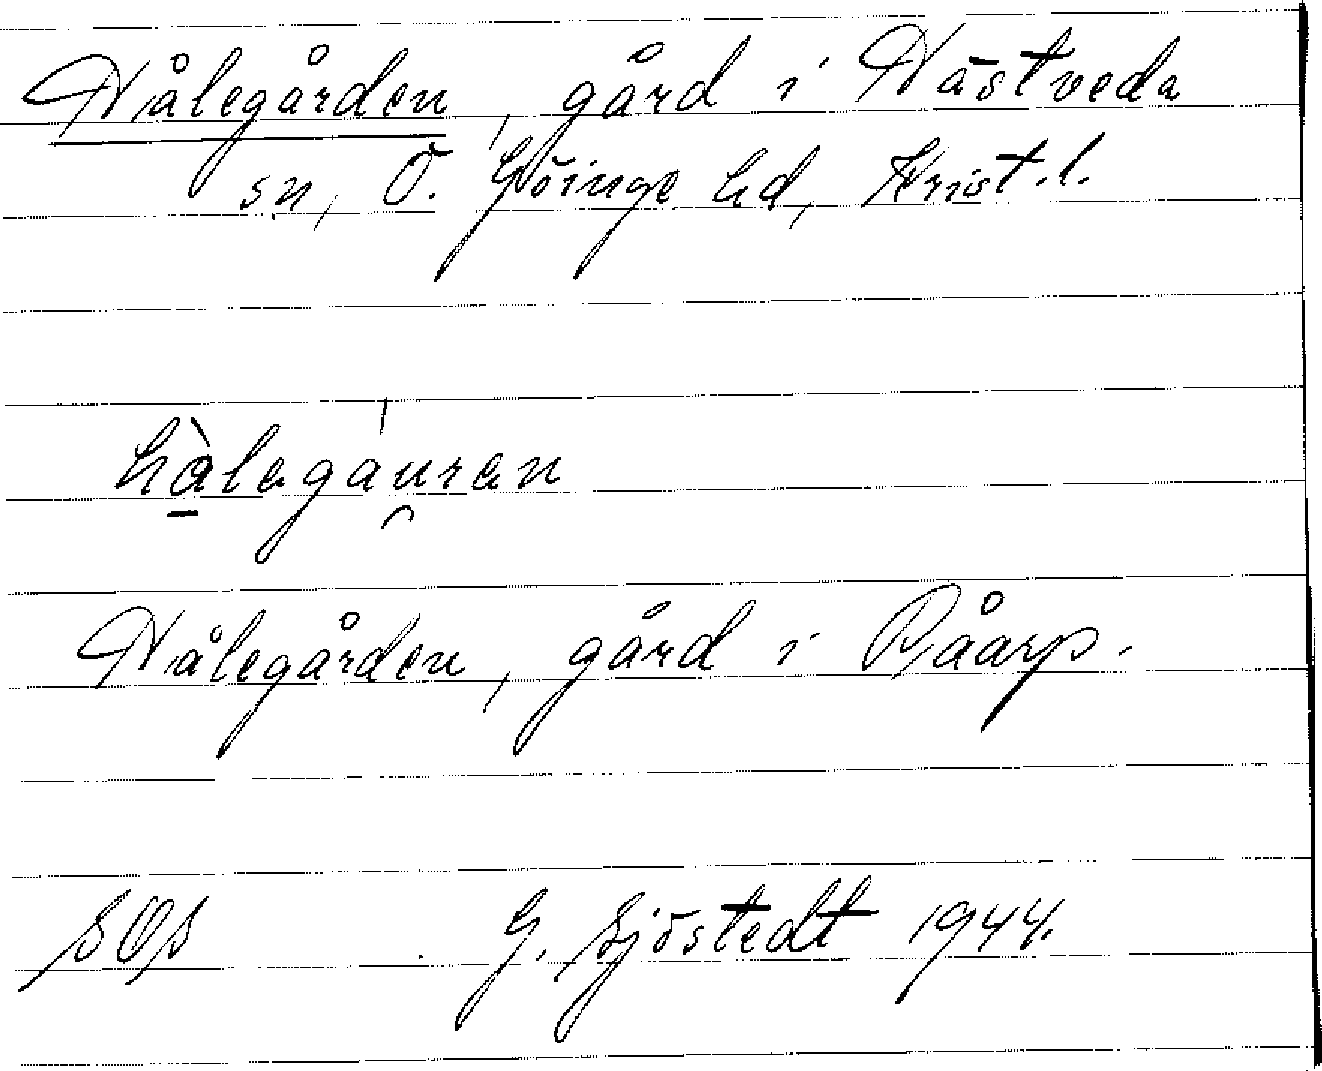 Hålegården, gård i Hästveda
sn, Ö. Göinge hd, Krist. l.
hàlegáuren
Hålegården, gård i Råarp.
SOS G. Sjöstedt 1944.